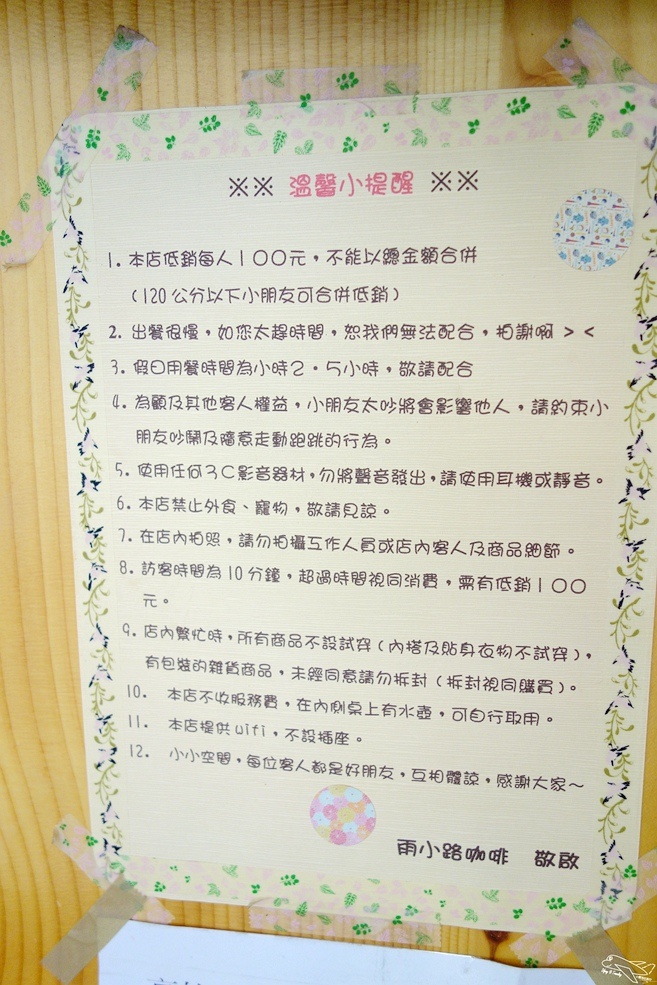 ※※ 溫馨小提醒 ※※
1. 本店低銷每人１００元，不能以總金額合併
（120 公分以下小朋友可合併低銷）
2. 出餐很慢，如您太趕時間，恕我們無法配合，拍謝啊 > <
3. 假日用餐時間為小時２．５小時，敬請配合
4. 為顧及其他客人權益，小朋友太吵將會影響他人，請約束小
朋友吵鬧及隨意走動跑跳的行為。
5. 使用任何３Ｃ影音器材，勿將聲音發出，請使用耳機或靜音。
6. 本店禁止外食、寵物，敬請見諒。
7. 在店內拍照，請勿拍攝工作人員或店內客人及商品細節。
8. 訪客時間為 10 分鐘，超過時間視同消費，需有低銷１００
元。
9. 店內繁忙時，所有商品不設試穿（內搭及貼身衣物不試穿），
有包裝的雜貨商品，未經同意請勿拆封（拆封視同購買）。
10. 本店不收服務費，在內側桌上有水壺，可自行取用。
11. 本店提供 wifi，不設插座。
12. 小小空間，每位客人都是好朋友，互相體諒，感謝大家～
雨小路咖啡 敬啟